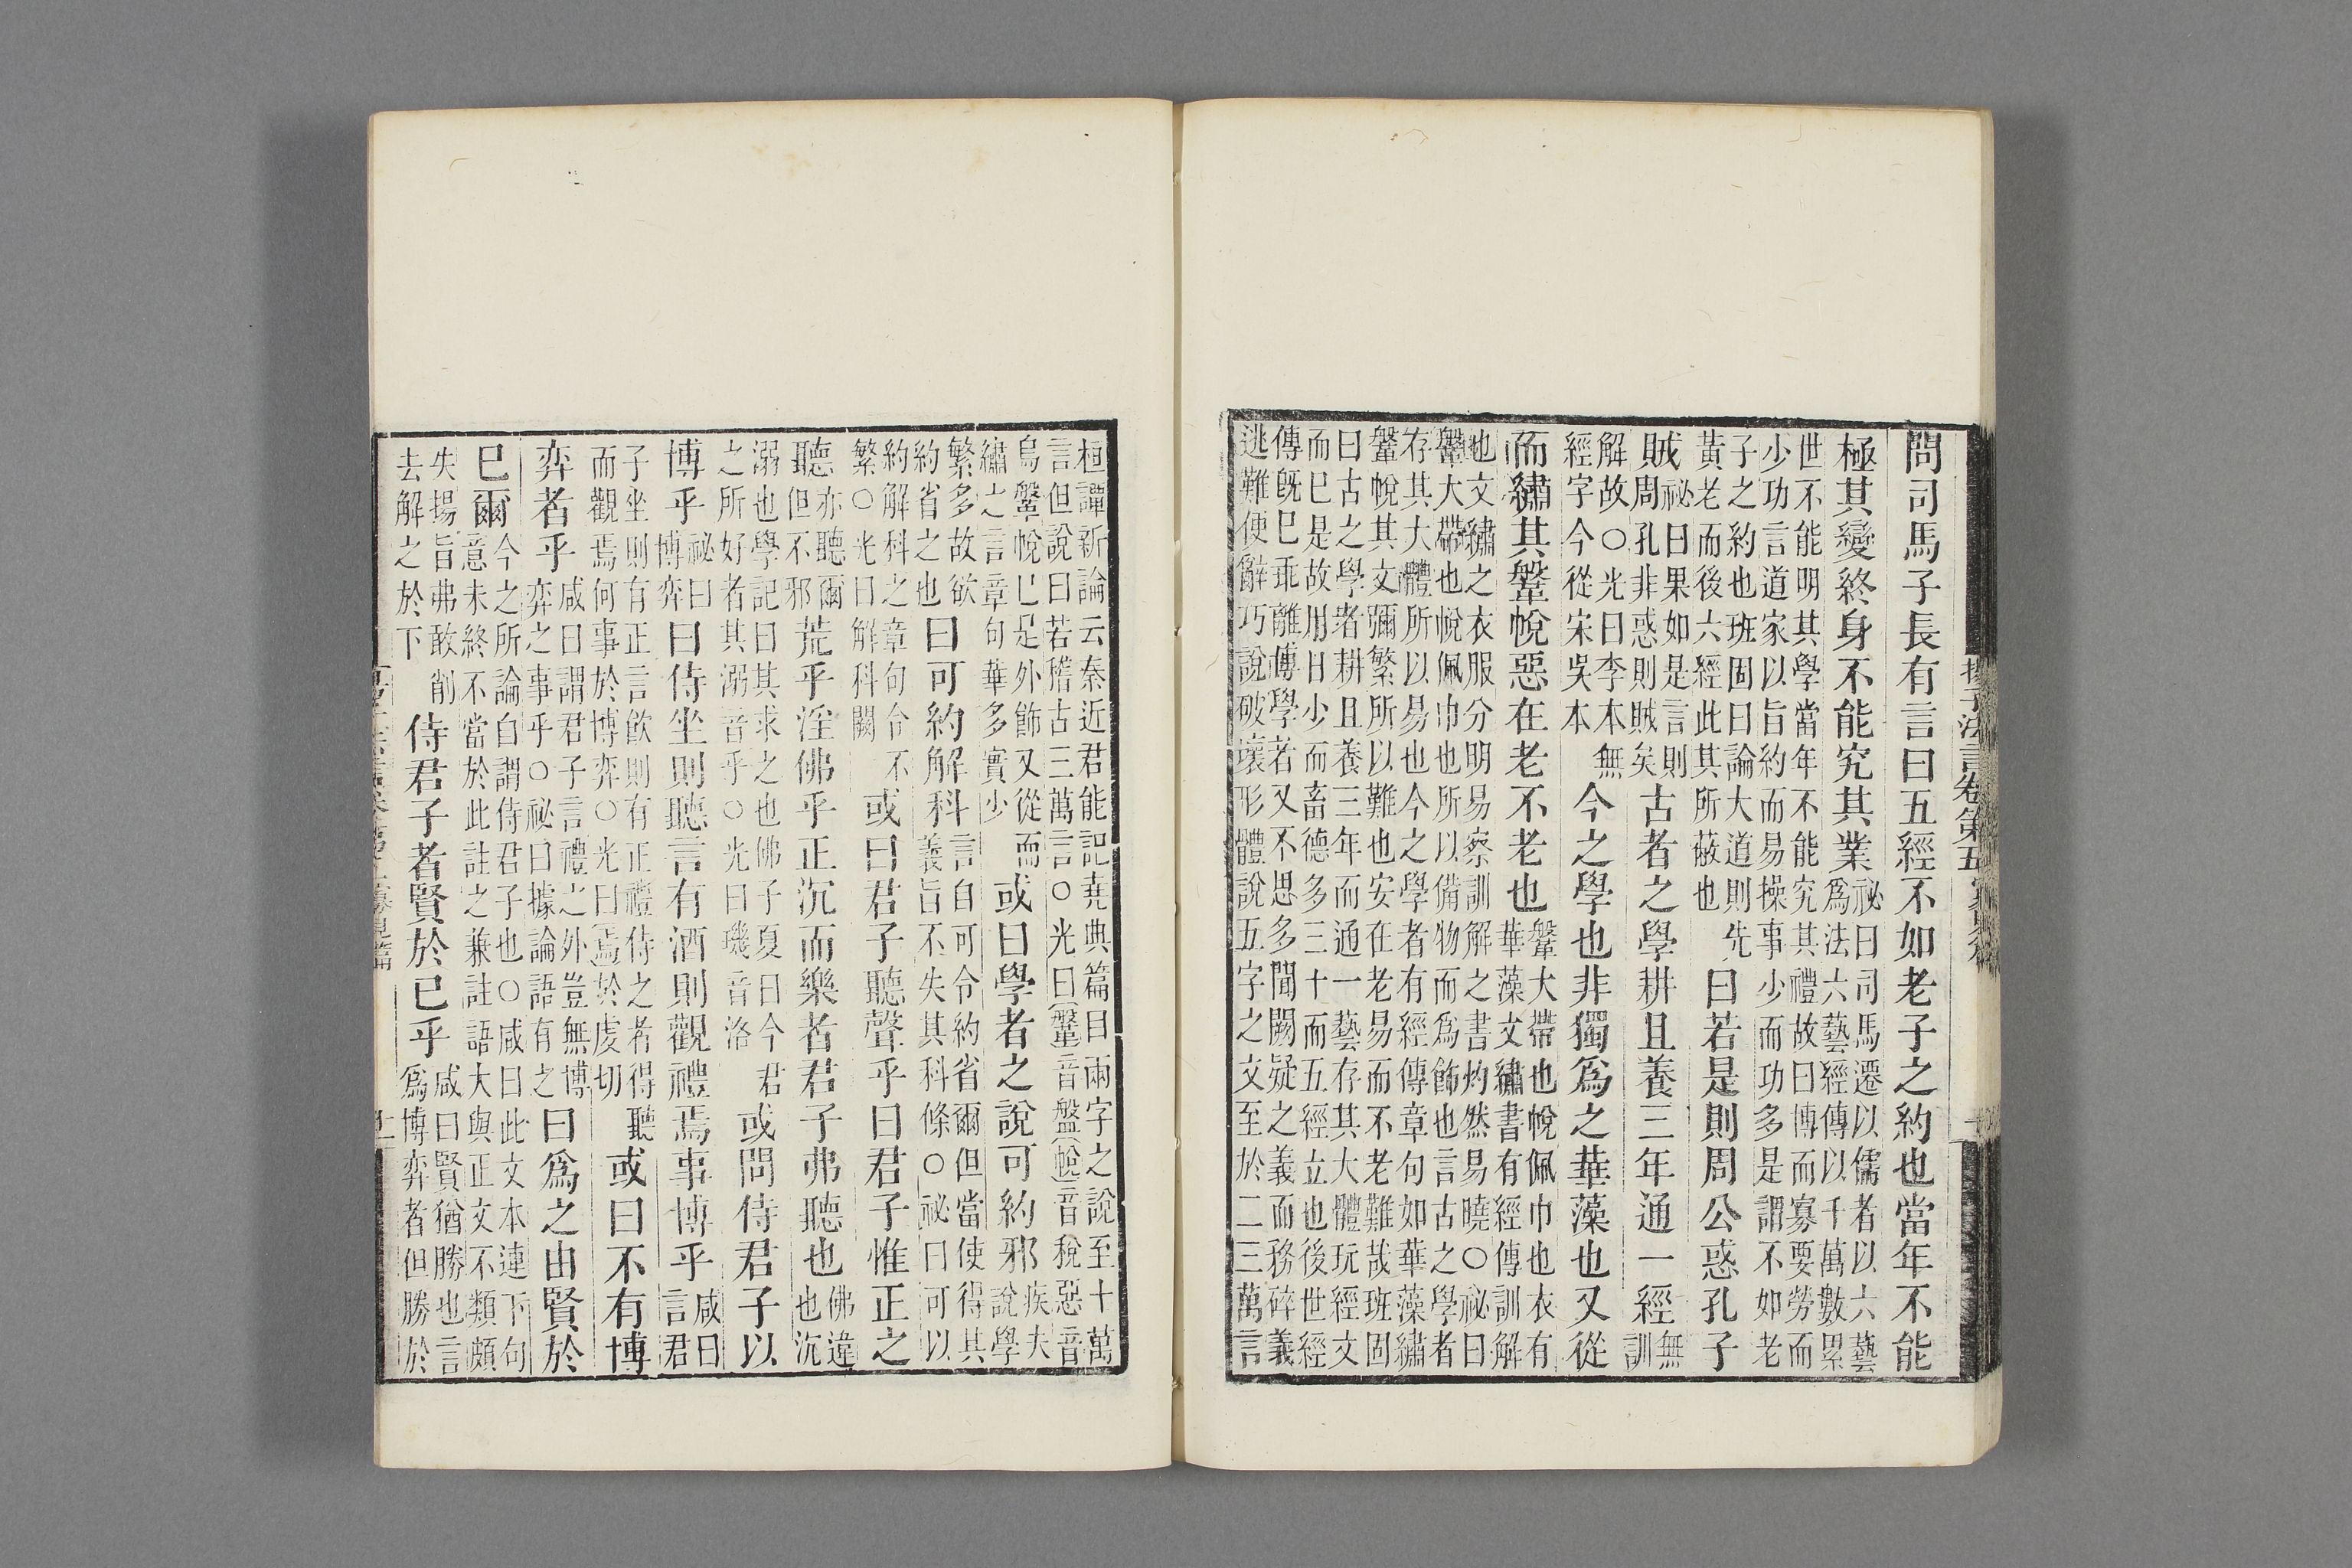 揚子法言卷第五
問司馬子長有言曰五經不如老子之約也當年不能
極其變終身不能究其業
祕曰司馬遷以儒者以六藝
爲法六藝經傳以千萬數累
世不能明其學當年不能究其禮故曰博而寡要勞而
少功言道家以旨約而易操事少而功多是謂不如老
子之約也班固曰論大道則先
黃老而後六經此其所蔽也
曰若是則周公惑孔子
賊
祕曰果如是言則
周孔非惑則賊矣
古者之學耕且養三年通一經
無
訓
解故○光曰李本無
經字今從宋吳本
今之學也非獨爲之華藻也又從
而繡其鞶帨惡在老不老也
鞶大帶也帨佩巾也衣有
華藻文繡書有經傳訓解
也文繡之衣服分明易察訓解之書灼然易曉○祕曰
鞶大帶也帨佩巾也所以備物而爲飾也言古之學者
存其大體所以易也今之學者有經傳章句如華藻繡
鞶帨其文彌繁所以難也安在老易而不老難哉班固
曰古之學者耕且養三年而通一藝存其大體玩經文
而已是故用日少而畜德多三十而五經立也後世經
傳旣已乖離傳學者又不思多聞闕疑之義而務碎義
逃難便辭巧說破壞形體說五字之文至於二三萬言
桓譚新論云秦近君能記堯典篇目兩字之說至十萬
言但說曰若稽古三萬言○光曰鞶音盤帨音稅惡音
烏鞶帨已是外飾又從而
繡之言章句華多實少
或曰學者之說可約邪
疾夫
說學
繁多故欲
約省之也
曰可約解科
言自可令約省爾但當使得其
義旨不失其科條○祕曰可以
約解科之章句令不
繁○光曰解科闕
或曰君子聽聲乎曰君子惟正之
聽
亦聽爾
但不邪
荒乎淫佛乎正沉而樂者君子弗聽也
佛違
也沉
溺也學記曰其求之也佛子夏曰今君
之所好者其溺音乎○光曰璣音洛
或問侍君子以
博乎
祕曰
博弈
曰侍坐則聽言有酒則觀禮焉事博乎
咸曰
言君
子坐則有正言飮則有正禮侍之者得聽
而觀焉何事於博弈○光曰焉於虔切
或曰不有博
弈者乎
咸曰謂君子言禮之外豈無博
弈之事乎○祕曰據論語有之
曰爲之由賢於
已爾
今之所論自謂侍君子也○咸曰此文本連下句
意未終不當於此註之兼註語大與正文不類頗
失揚旨弗敢削
去解之於下
侍君子者賢於已乎
咸曰賢猶勝也言
爲博弈者但勝於